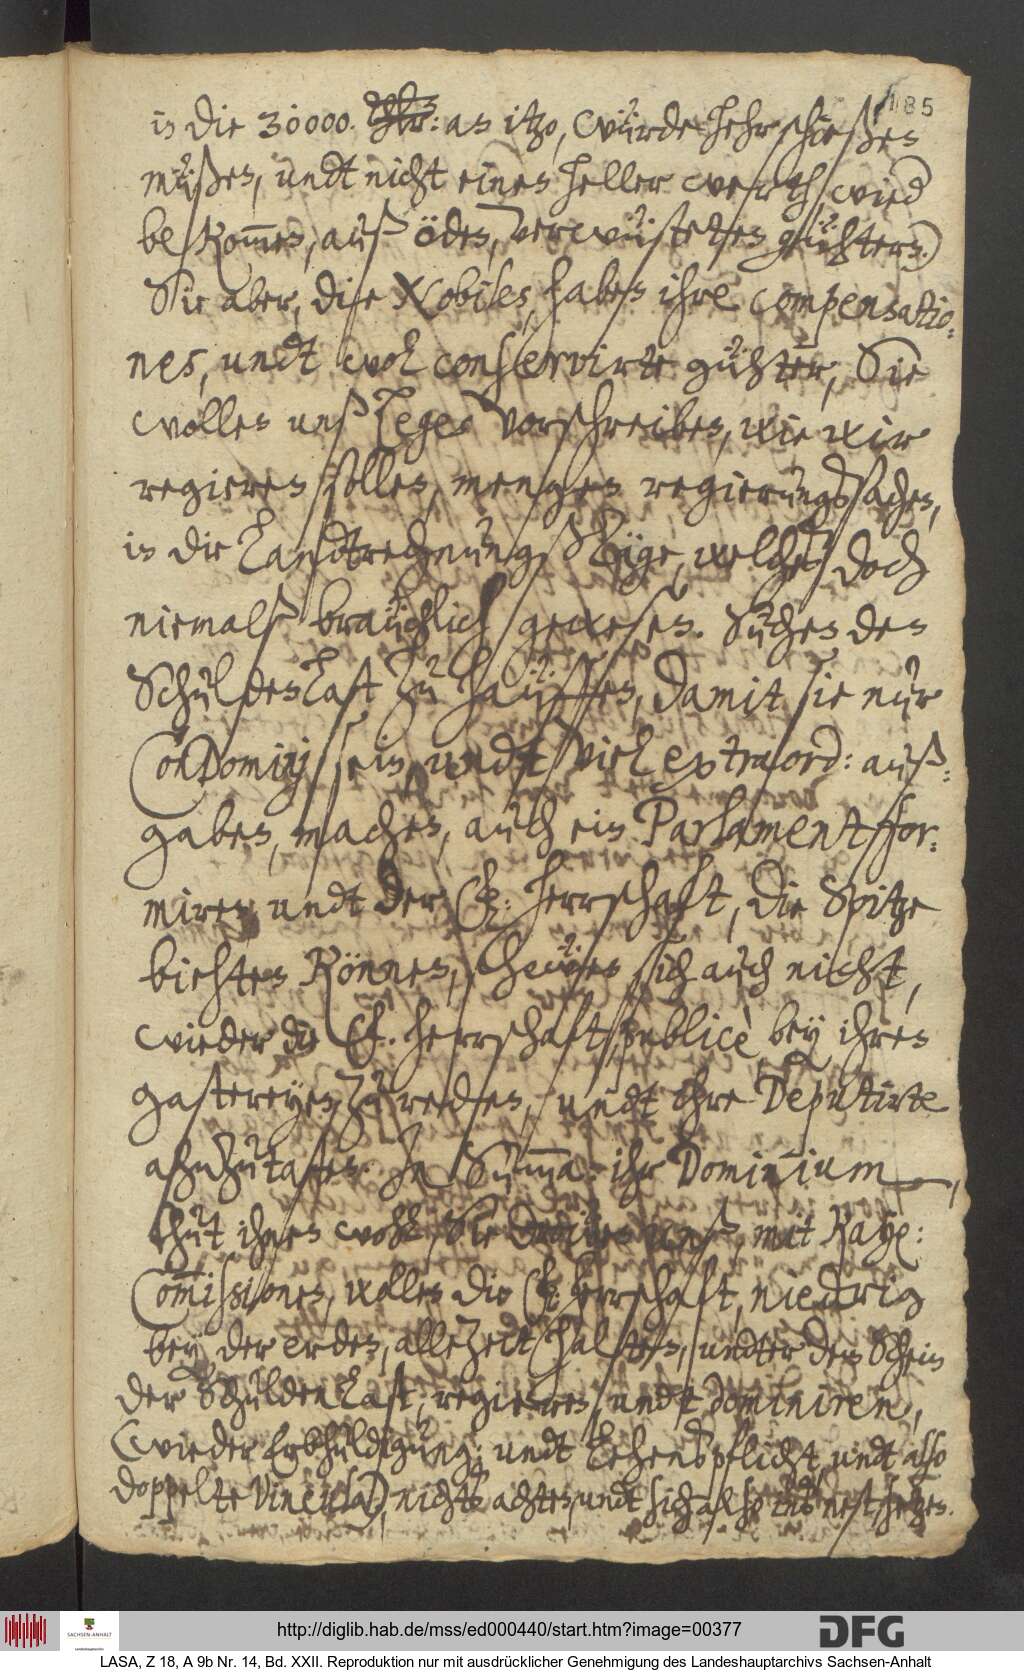 185
in die 30000. Thlr: an itzo, würde herschießen
müßen, undt nicht eines heller werth, wied
bekommen, auß öden, verwüsteten gühtern.)
Sie aber, die Nobiles, haben ihre compensatio-
nes, undt wol conservirte gühter, Sie
wollen uns Leges vorschreiben, wie wir
regieren sollen, mengen regierungssachen,
in die Landtrechnungs Züge, welches doch
niemalß braüchlich gewesen. Suchen den
Schuldenlast zu haüffen, damit sie nur
ConDominj sein, undt viel extraord: auß-
gaben, machen, auch ein Parlament for-
miren undt der Herrschaft, die Spitze
biehten können, schewen sich auch nicht,
wieder die Herrschaft, publicè bey ihren
gastereyen zu reden, undt ihre Deputirte
ahnzutasten. In Summa: ihr Dominium,
thut ihnen wohl, Sie unß, mit Kaye:
Commissionen, wollen die Herrschaft, niedrig
bey der erden, allezeit halten, undter dem Schein
der Schuldenlast, regieren, undt dominiren,
(wieder Erbhuldigung: undt Lehenspflicht, undt also
doppelte Vincula) nichts achten, undt sich also ins nest setzen.
http://diglib.hab.de/mss/ed000440/start.htm?image=00377
SACHSEN-ANHALT
DFG
LASA, Z 18, A 9b Nr. 14, Bd. XXII. Reproduktion nur mit ausdrücklicher Genehmigung des Landeshauptarchivs Sachsen-Anhalt